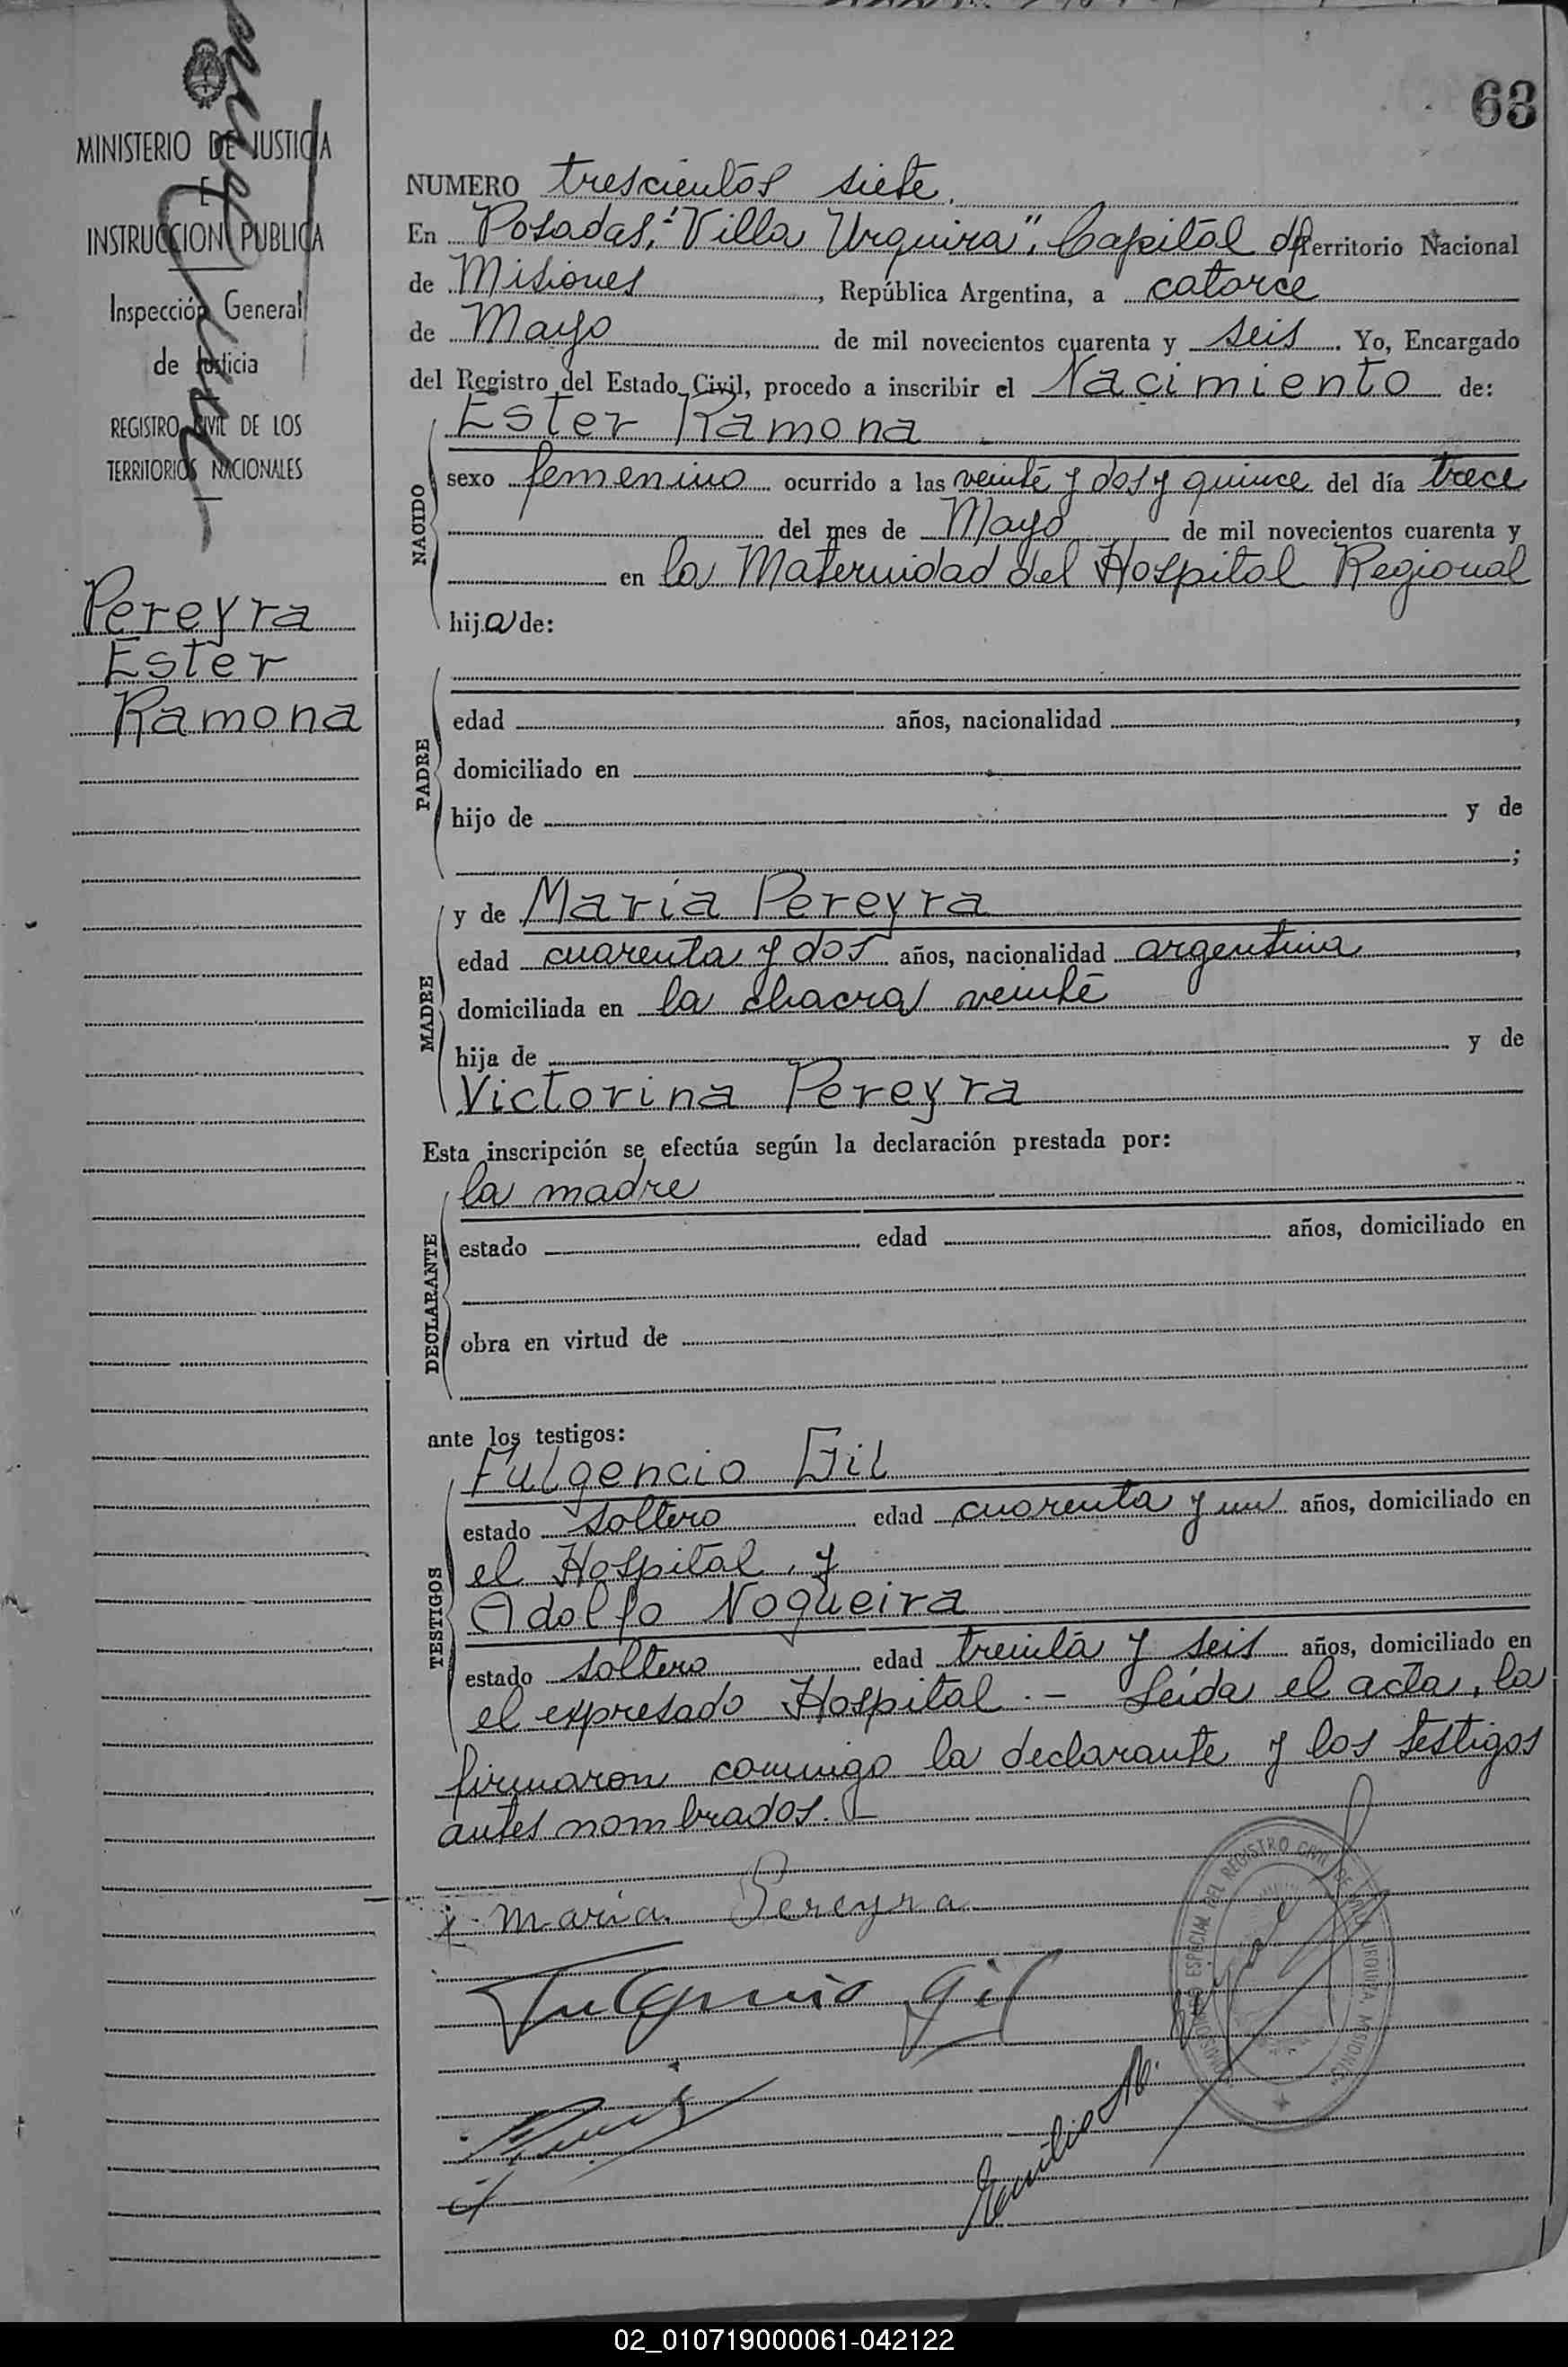 63
MINISTERIO DE JUSTICIA
E
INSTRUCCION PUBLICA
Inspección General
de Justicia
REGISTRO CIVIL DE LOS
TERRITORIOS NACIONALES
Pereyra
Ester
Ramona
NUMERO trescientos siete.
En Posadas, "Villa Urquiza", Capital del Territorio Nacional
de Misiones, República Argentina, a catorce
de Mayo de mil novecientos cuarenta y seis. Yo, Encargado
del Registro del Estado Civil, procedo a inscribir el Nacimiento de:
NACIDO
Ester Ramona
sexo femenino ocurrido a las veinte y dos y quince del día trece
del mes de Mayo de mil novecientos cuarenta y
en la Maternidad del Hospital Regional
hija de:
PADRE
edad años, nacionalidad ,
domiciliado en
hijo de y de
;
MADRE
y de María Pereyra
edad cuarenta y dos años, nacionalidad argentina,
domiciliada en la chacra veinte
hija de y de
Victorina Pereyra
Esta inscripción se efectúa según la declaración prestada por:
DECLARANTE
la madre
estado edad años, domiciliado en
obra en virtud de
ante los testigos:
TESTIGOS
Fulgencio Gil
estado soltero edad cuarenta y un años, domiciliado en
el Hospital, y
Adolfo Nogueira
estado soltero edad treinta y seis años, domiciliado en
el expresado Hospital.- Leída el acta, la
firmaron conmigo la declarante y los testigos
antes nombrados.-
María Pereyra
Fulgencio Gil
Emilio
DEL REGISTRO CIVIL DE VILLA URQUIZA, MISIONES
02_010719000061-042122